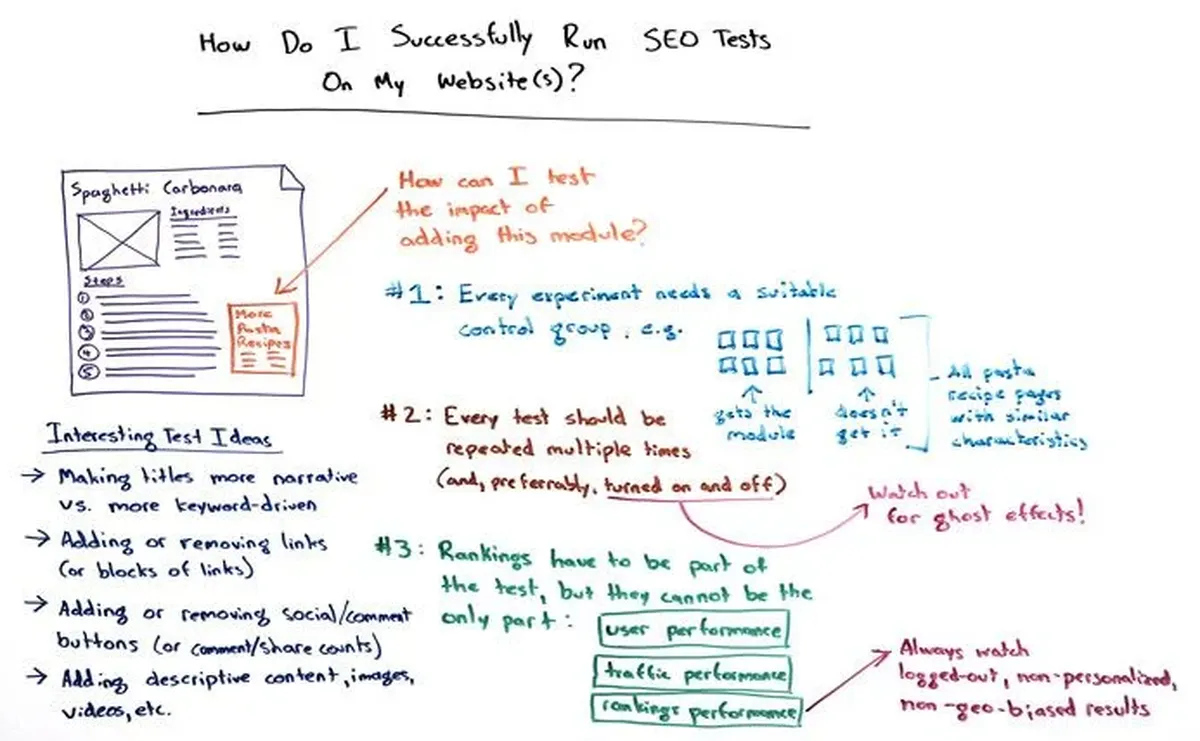 How Do I Successfully Run SEO Tests
On My Website(s)?
Spaghetti Carbonara
Ingredients
Steps
1
2
3
4
5
More
Pasta
Recipes
How can I test
the impact of
adding this module?
#1: Every experiment needs a suitable
control group, e.g.
gets the
module
doesn't
get it
All pasta
recipe pages
with similar
characteristics
#2: Every test should be
repeated multiple times
(and, preferrably, turned on and off)
Watch out
for ghost effects!
#3: Rankings have to be part of
the test, but they cannot be the
only part:
user performance
traffic performance
rankings performance
Always watch
logged-out, non-personalized,
non-geo-biased results
Interesting Test Ideas
→ Making titles more narrative
vs. more keyword-driven
→ Adding or removing links
(or blocks of links)
→ Adding or removing social/comment
buttons (or comment/share counts)
→ Adding descriptive content, images,
videos, etc.